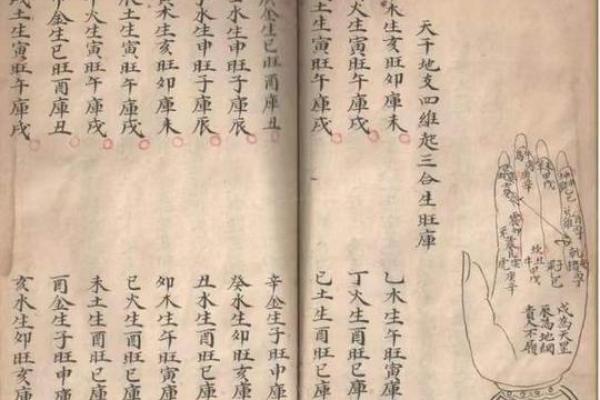 天干地支四維起三合生旺庫
木生亥旺卯庫未
火生寅旺午庫戌
土生寅旺午庫戌
乙木生午旺寅庫
丁火生酉旺巳庫
己土生酉旺巳庫
戌為天罡
辰為地網
貴人不
金生巳旺酉庫丑
水生申旺子庫辰
水生申旺子庫辰
木生亥旺卯庫未
土生寅旺午庫戌
火生寅旺午庫戌
金生巳旺酉庫丑
土生寅旺午庫戌
辛金生子旺申庫
癸水生卯旺亥庫
丑水生酉旺巳庫
卯木生午旺寅庫
巳火生酉旺巳庫
未土生酉旺巳庫
酉金生子旺申庫
亥水生卯旺亥庫